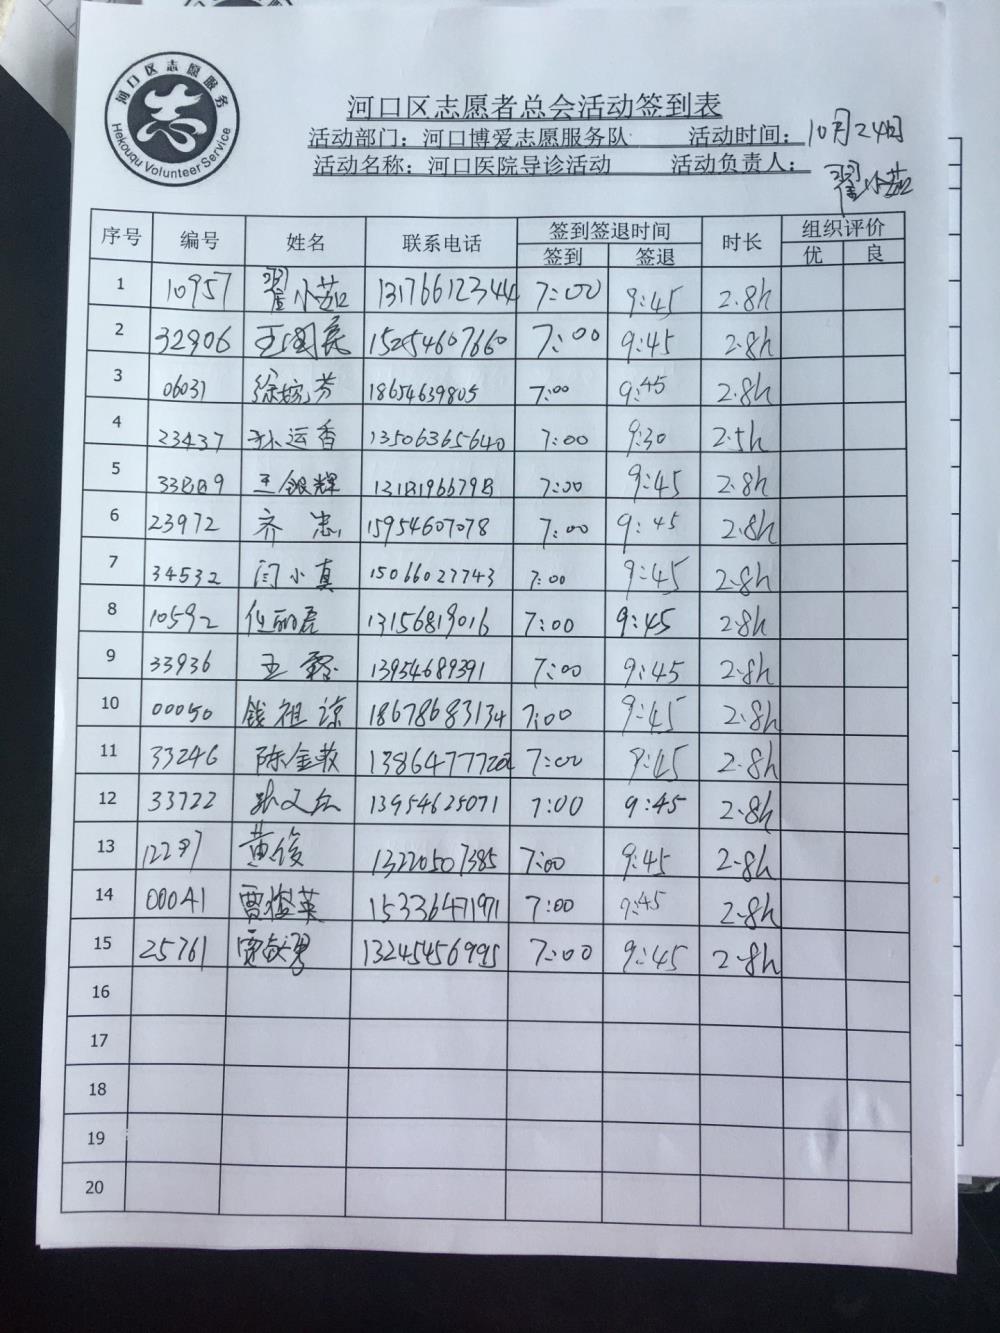 河口区志愿服务
Hekouqu Volunteer Service
河口区志愿者总会活动签到表
活动部门：河口博爱志愿服务队 活动时间：10月24日
活动名称：河口医院导诊活动 活动负责人：翟小茹
序号 编号 姓名 联系电话 签到签退时间 时长 组织评价
签到 签退 优 良
1 10957 翟小茹 13176612344 7:00 9:45 2.8h
2 32906 王国良 15254607660 7:00 9:45 2.8h
3 06031 徐婉芳 18654639805 7:00 9:45 2.8h
4 23437 孙运香 13506365640 7:00 9:30 2.5h
5 王银辉 7:00 9:45 2.8h
6 23972 齐忠 15954607078 7:00 9:45 2.8h
7 34532 闫小真 15066027743 7:00 9:45 2.8h
8 10592 13156819016 7:00 9:45 2.8h
9 33936 王 13954689391 7:00 9:45 2.8h
10 00050 钱祖谅 18678683134 7:00 9:45 2.8h
11 33246 陈金敏 7:00 9:45 2.8h
12 33722 13954625071 7:00 9:45 2.8h
13 黄俊 13220507385 7:00 9:45 2.8h
14 00041 贾俊英 15336471971 7:00 9:45 2.8h
15 25761 13245456995 7:00 9:45 2.8h
16
17
18
19
20